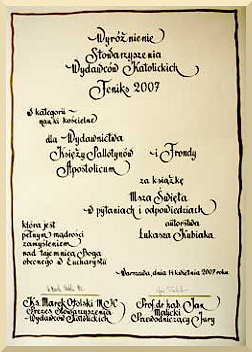 Wyróżnienie
Stowarzyszenia
Wydawców Katolickich
Feniks 2007
w kategorii -
nauki kościelne
dla Wydawnictwa
Księży Pallotynów i Frondy
Apostolicum
za książkę
Msza Święta
w pytaniach i odpowiedziach
autorstwa
Łukasza Kubiaka
która jest
pełnym mądrości
zamyśleniem
nad tajemnicą Boga
obecnego w Eucharystii
Warszawa, dnia 14 kwietnia 2007 roku
Ks. Marek Otolski MIC
Prezes Stowarzyszenia
Wydawców Katolickich
Prof. dr hab. Jan
Malicki
Przewodniczący Jury